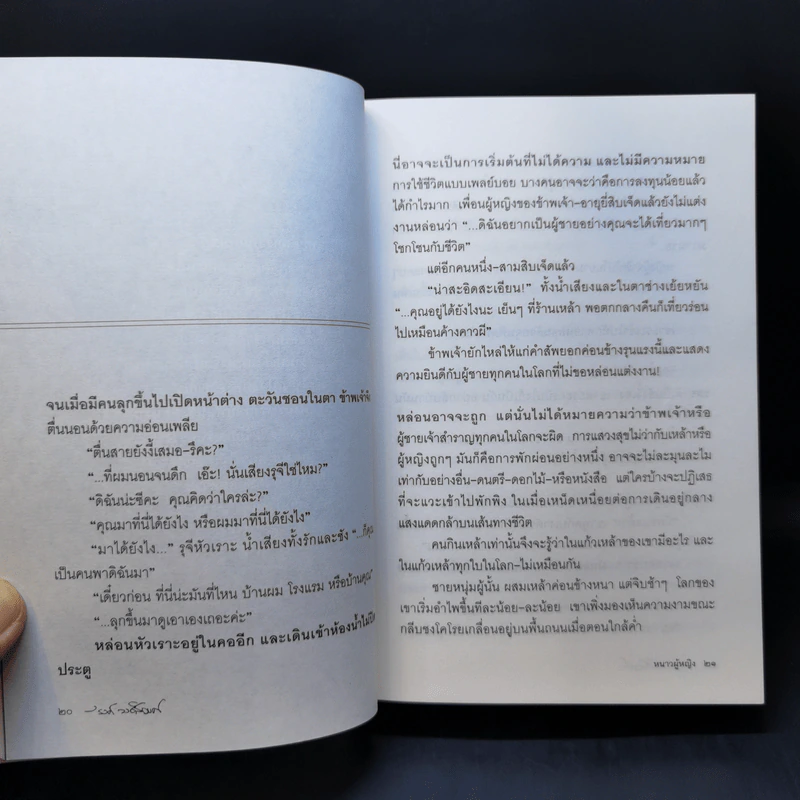 จนเมื่อมีคนลุกขึ้นไปเปิดหน้าต่าง ตะวันชอนในตา ข้าพเจ้าจึง
ตื่นนอนด้วยความอ่อนเพลีย
“ตื่นสายยังงี้เสมอ-รึคะ?”
“...ที่ผมนอนจนดึก เอ๊ะ! นั่นเสียงรุจีใช่ไหม?”
“ดิฉันน่ะซีคะ คุณคิดว่าใครล่ะ?”
“คุณมาที่นี่ได้ยังไง หรือผมมาที่นี่ได้ยังไง”
“มาได้ยังไง...” รุจีหัวเราะ น้ำเสียงทั้งรักและชัง “...ก็คุณ
เป็นคนพาดิฉันมา”
“เดี๋ยวก่อน ที่นี่น่ะมันที่ไหน บ้านผม โรงแรม หรือบ้านคุณ”
“...ลุกขึ้นมาดูเอาเองเถอะค่ะ”
หล่อนหัวเราะอยู่ในคออีก และเดินเข้าห้องน้ำไม่ปิด
ประตู
๒๐ รงค์ วงษ์สวรรค์
นี่อาจจะเป็นการเริ่มต้นที่ไม่ได้ความ และไม่มีความหมาย
การใช้ชีวิตแบบเพลย์บอย บางคนอาจจะว่าคือการลงทุนน้อยแล้ว
ได้กำไรมาก เพื่อนผู้หญิงของข้าพเจ้า-อายุยี่สิบเจ็ดแล้วยังไม่แต่ง
งานหล่อนว่า “...ดิฉันอยากเป็นผู้ชายอย่างคุณจะได้เที่ยวมากๆ
โชกโชนกับชีวิต”
แต่อีกคนหนึ่ง-สามสิบเจ็ดแล้ว
“น่าสะอิดสะเอียน!” ทั้งน้ำเสียงและในตาช่างเย้ยหยัน
“...คุณอยู่ได้ยังไงนะ เย็นๆ ที่ร้านเหล้า พอตกกลางคืนก็เที่ยวร่อน
ไปเหมือนค้างคาวผี”
ข้าพเจ้ายักไหล่ให้แก่คำสัพยอกค่อนข้างรุนแรงนี้และแสดง
ความยินดีกับผู้ชายทุกคนในโลกที่ไม่ขอหล่อนแต่งงาน!
หล่อนอาจจะถูก แต่นั่นไม่ได้หมายความว่าข้าพเจ้าหรือ
ผู้ชายเจ้าสำราญทุกคนในโลกจะผิด การแสวงสุขไม่ว่ากับเหล้าหรือ
ผู้หญิงถูกๆ มันก็คือการพักผ่อนอย่างหนึ่ง อาจจะไม่ละมุนละไม
เท่ากับอย่างอื่น-ดนตรี-ดอกไม้-หรือหนังสือ แต่ใครบ้างจะปฏิเสธ
ที่จะแวะเข้าไปพักพิง ในเมื่อเหน็ดเหนื่อยต่อการเดินอยู่กลาง
แสงแดดกล้าบนเส้นทางชีวิต
คนกินเหล้าเท่านั้นจึงจะรู้ว่าในแก้วเหล้าของเขามีอะไร และ
ในแก้วเหล้าทุกใบในโลก-ไม่เหมือนกัน
ชายหนุ่มผู้นั้น ผสมเหล้าค่อนข้างหนา แต่จิบช้าๆ โลกของ
เขาเริ่มอำไพขึ้นทีละน้อย-ละน้อย เขาเพิ่งมองเห็นความงามขณะ
กลีบชงโคโรยเกลื่อนอยู่บนพื้นถนนเมื่อตอนใกล้ค่ำ
หนาวผู้หญิง ๒๑